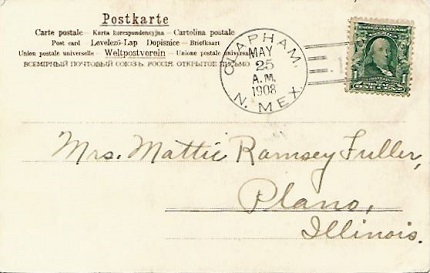 Postkarte
Carte postale – Karta korespondencyjna – Cartolina postale
Post card – Levelező-Lap – Dopisnice – Briefkaart
Union postale universelle – Weltpostverein – Unione postale universale
ВСЕМІРНЫЙ ПОЧТОВЫЙ СОЮЗЪ. РОССІЯ. ОТКРЫТОЕ ПИСЬМО
CLAPHAM.
MAY
25
A.M.
1908
N. MEX.
Mrs. Mattie Ramsey Fuller,
Plano,
Illinois.